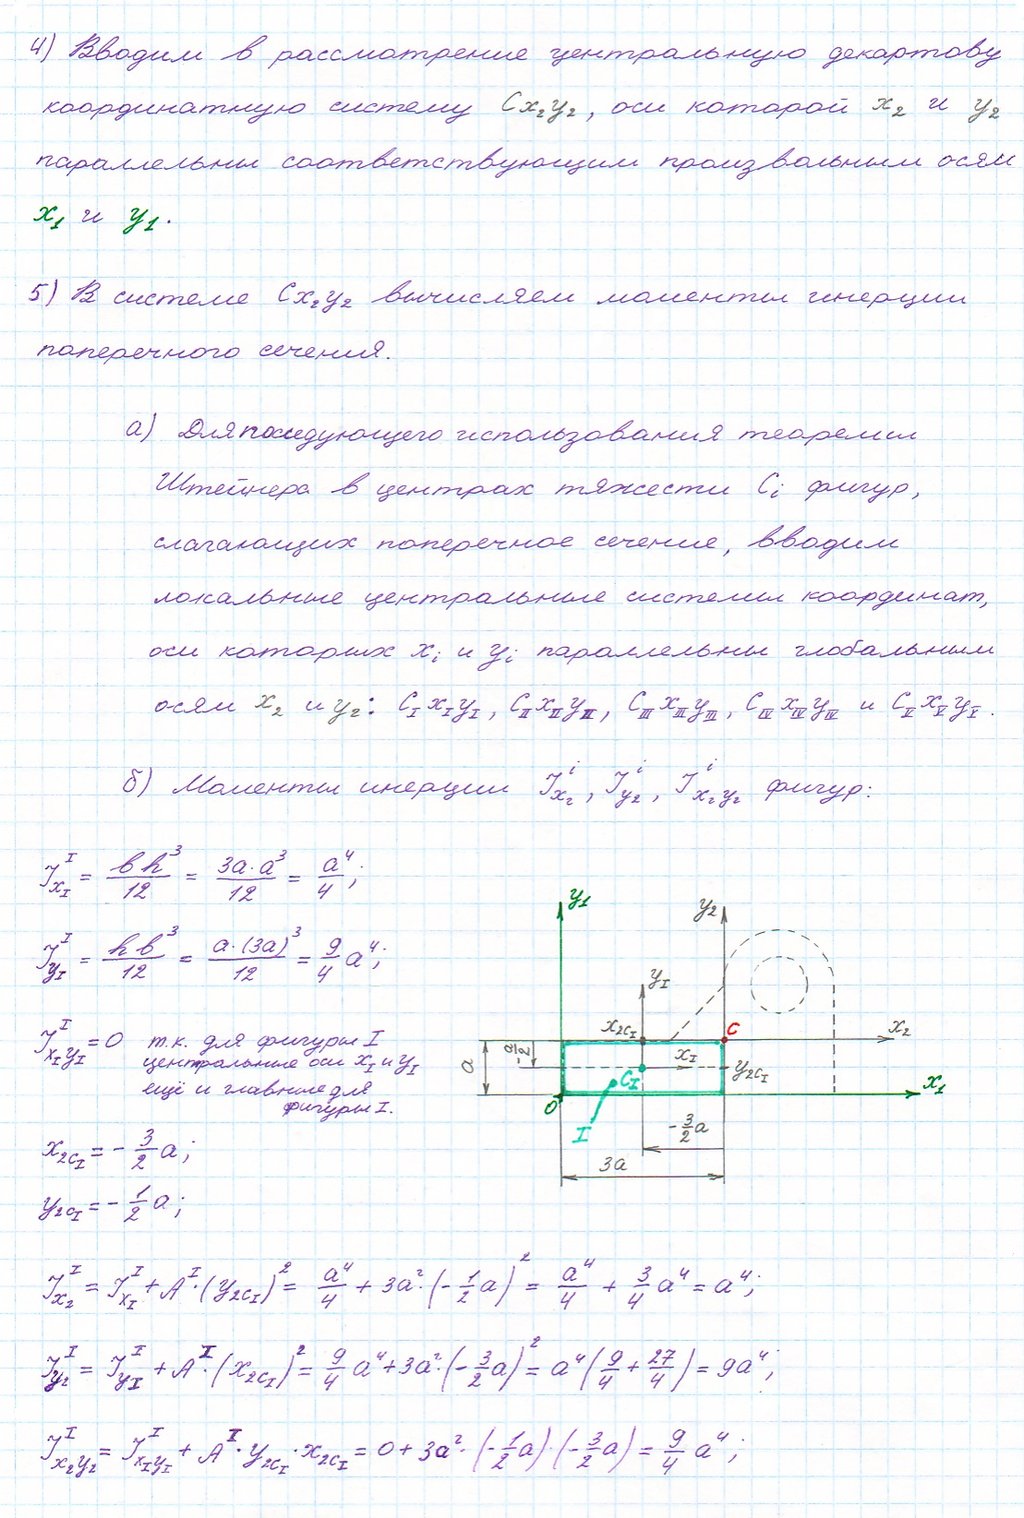 4) Вводим в рассмотрение центральную декартову
координатную систему Cx₂y₂, оси которой x₂ и y₂
параллельны соответствующим произвольным осям
x₁ и y₁.
5) В системе Cx₂y₂ вычисляем моменты инерции
поперечного сечения.
а) Для последующего использования теоремы
Штейнера в центрах тяжести Cᵢ фигур,
слагающих поперечное сечение, вводим
локальные центральные системы координат,
оси которых xᵢ и yᵢ параллельны глобальным
осям x₂ и y₂: C_I x_I y_I, C_II x_II y_II, C_III x_III y_III, C_IV x_IV y_IV и C_V x_V y_V.
б) Моменты инерции J^i_x₂, J^i_y₂, J^i_x₂y₂ фигур:
J^I_x_I = bh³/12 = 3a·a³/12 = a⁴/4;
J^I_y_I = hb³/12 = a·(3a)³/12 = 9/4 a⁴;
J^I_x_Iy_I = 0 т.к. для фигуры I
центральные оси x_I и y_I
ещё и главные для
фигуры I.
x_2C_I = -3/2 a;
y_2C_I = -1/2 a;
y₁
y₂
y_I
x_2C_I
C
x₂
a
-a/2
x_I
C_I
y_2C_I
O
x₁
I
-3/2 a
3a
J^I_x₂ = J^I_x_I + A^I·(y_2C_I)² = a⁴/4 + 3a²·(-1/2 a)² = a⁴/4 + 3/4 a⁴ = a⁴;
J^I_y₂ = J^I_y_I + A^I·(x_2C_I)² = 9/4 a⁴ + 3a²·(-3/2 a)² = a⁴(9/4 + 27/4) = 9a⁴;
J^I_x₂y₂ = J^I_x_Iy_I + A^I·y_2C_I·x_2C_I = 0 + 3a²·(-1/2 a)·(-3/2 a) = 9/4 a⁴;